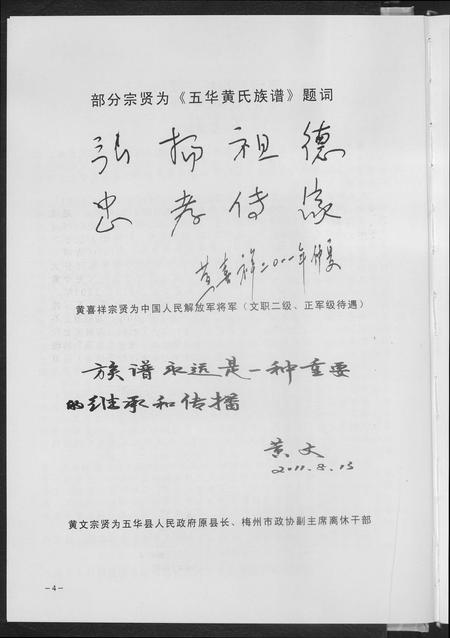 部分宗贤为《五华黄氏族谱》题词
弘扬祖德
忠孝传家
黄喜祥二〇〇一年仲夏
黄喜祥宗贤为中国人民解放军将军（文职二级、正军级待遇）
族谱永远是一种重要
的继承和传播
黄文
2011.8.13
黄文宗贤为五华县人民政府原县长、梅州市政协副主席离休干部
-4-